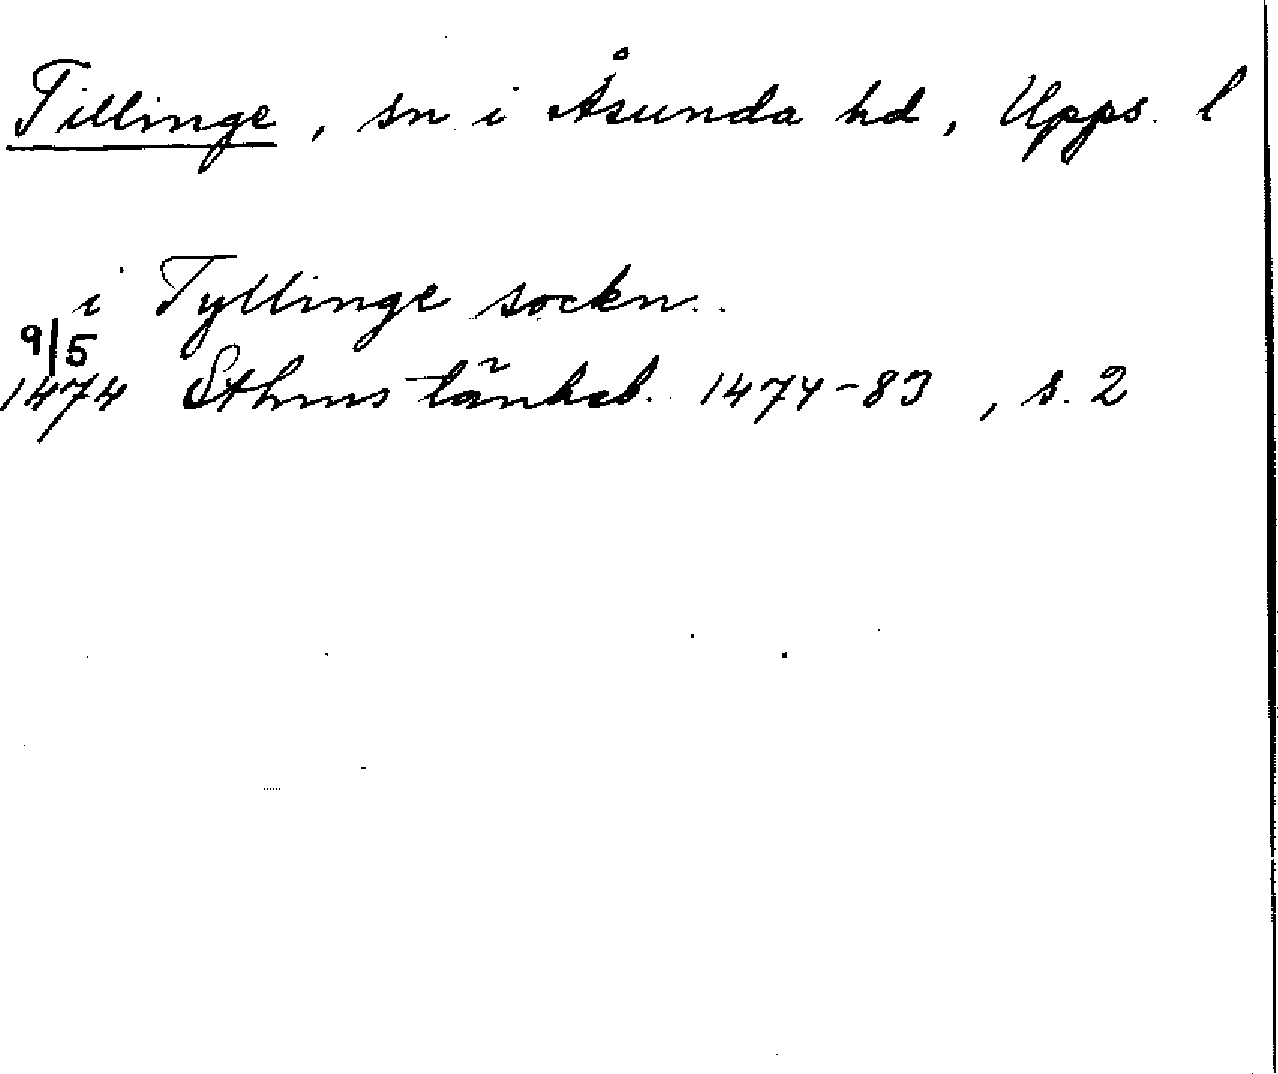 Tillinge, sn i Åsunda hd, Upps. l
i Tyllinge sockn.
9/5
1474 Sthms tänkeb. 1474-83, s. 2